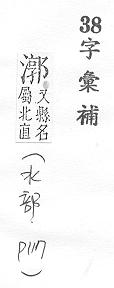 38字彙補
漷又縣名屬北直(水部.P117)